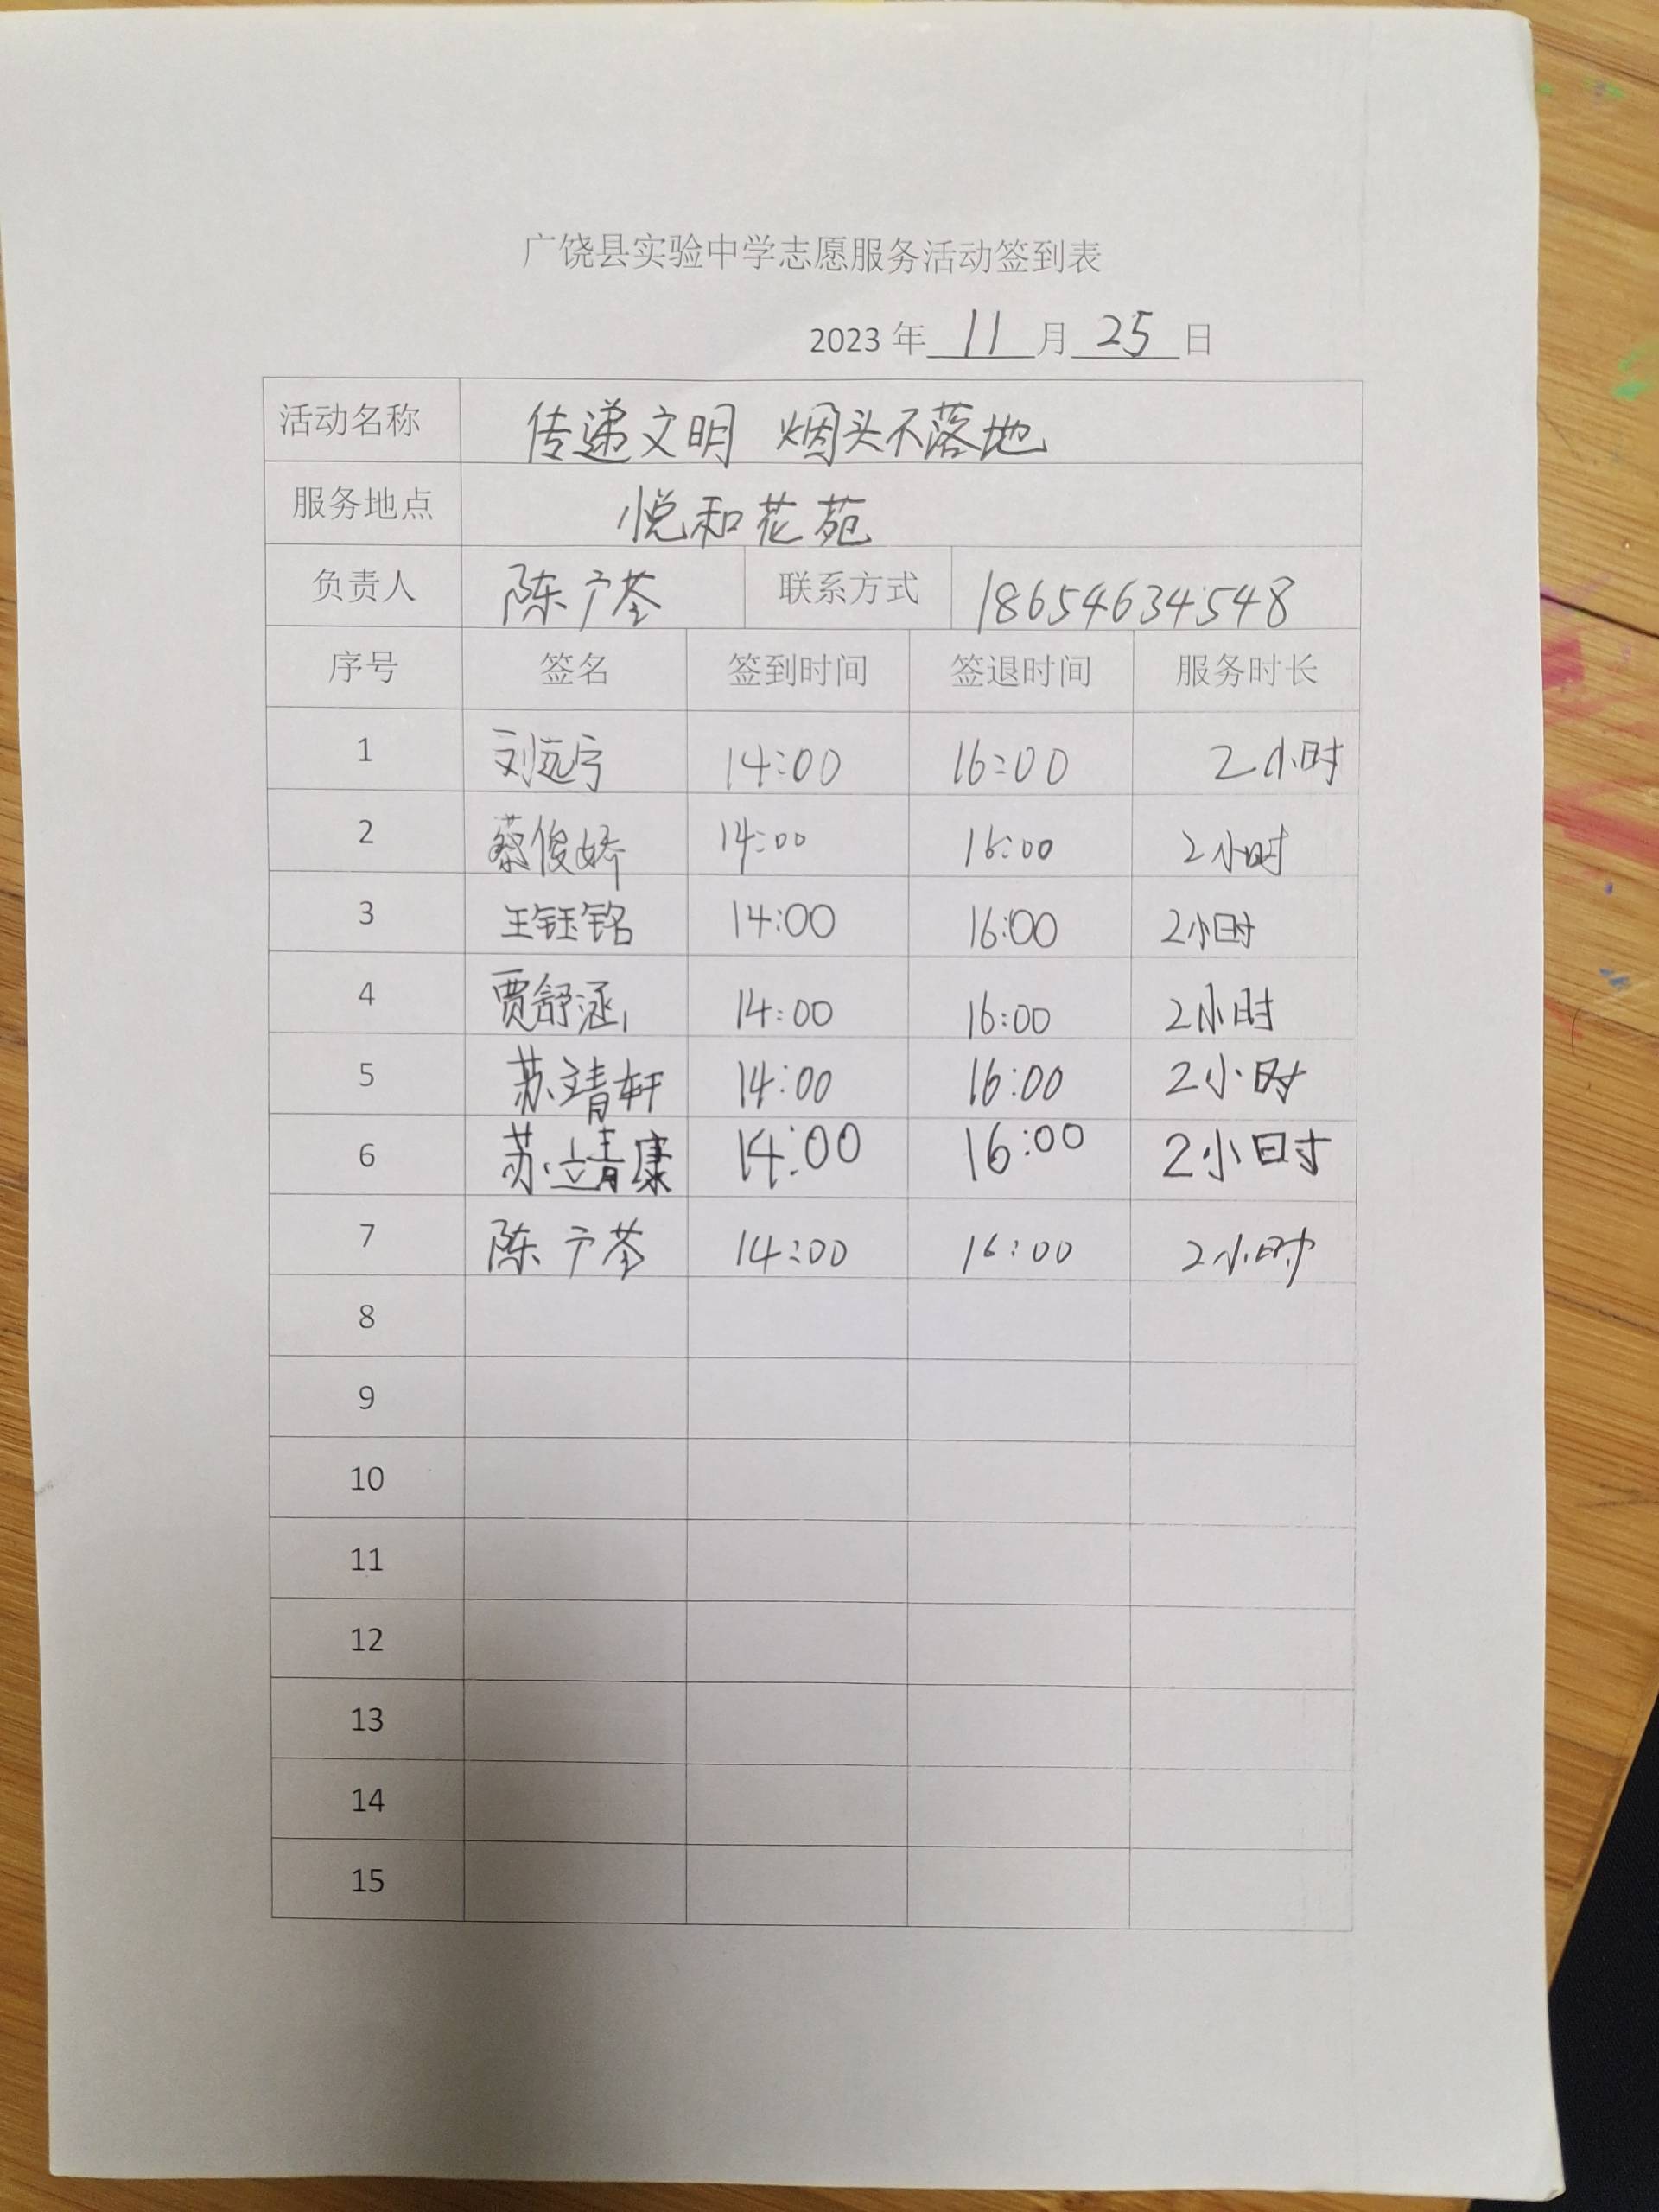 广饶县实验中学志愿服务活动签到表
2023 年 11 月 25 日
活动名称 传递文明 烟头不落地
服务地点 悦和花苑
负责人 陈广苓 联系方式 18654634548
序号 签名 签到时间 签退时间 服务时长
1 刘远宁 14:00 16:00 2小时
2 蔡俊娇 14:00 16:00 2小时
3 王钰铭 14:00 16:00 2小时
4 贾舒涵 14:00 16:00 2小时
5 苏靖轩 14:00 16:00 2小时
6 苏靖康 14:00 16:00 2小时
7 陈广苓 14:00 16:00 2小时
8
9
10
11
12
13
14
15